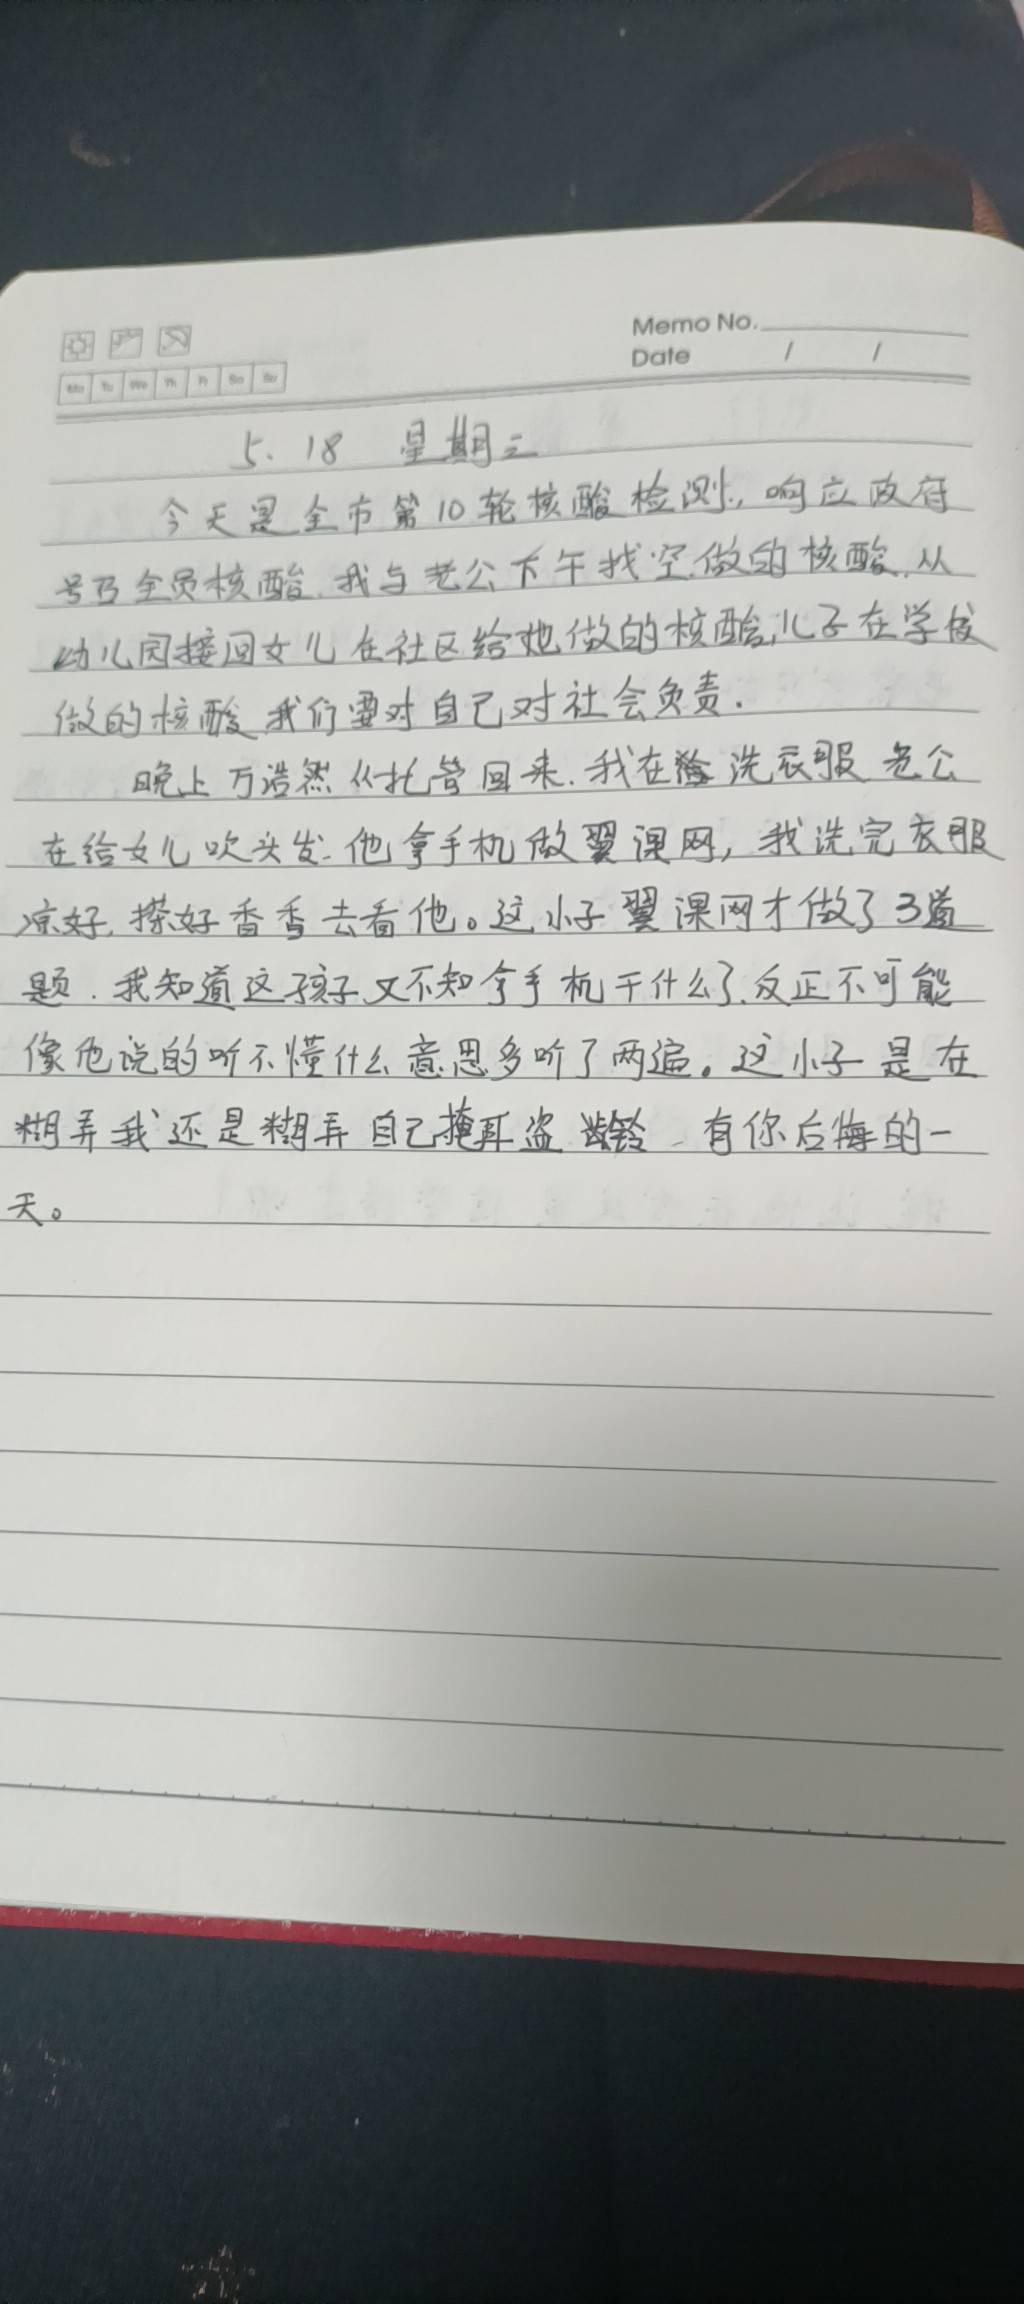 Memo No.
Date / /
Mo Tu We Th Fr Sa Su
5.18 星期三
今天是全市第10轮核酸检测,响应政府
号召全员核酸.我与老公下午找空做的核酸.从
幼儿园接回女儿在社区给她做的核酸,儿子在学校
做的核酸 我们要对自己对社会负责.
晚上万浩然从托管回来.我在洗衣服 老公
在给女儿吹头发.他拿手机做翼课网,我洗完衣服
凉好,搽好香香去看他。这小子翼课网才做了3道
题.我知道这孩子又不知拿手机干什么了.反正不可能
像他说的听不懂什么意思多听了两遍。这小子是在
糊弄我还是糊弄自己掩耳盗铃 有你后悔的一
天。